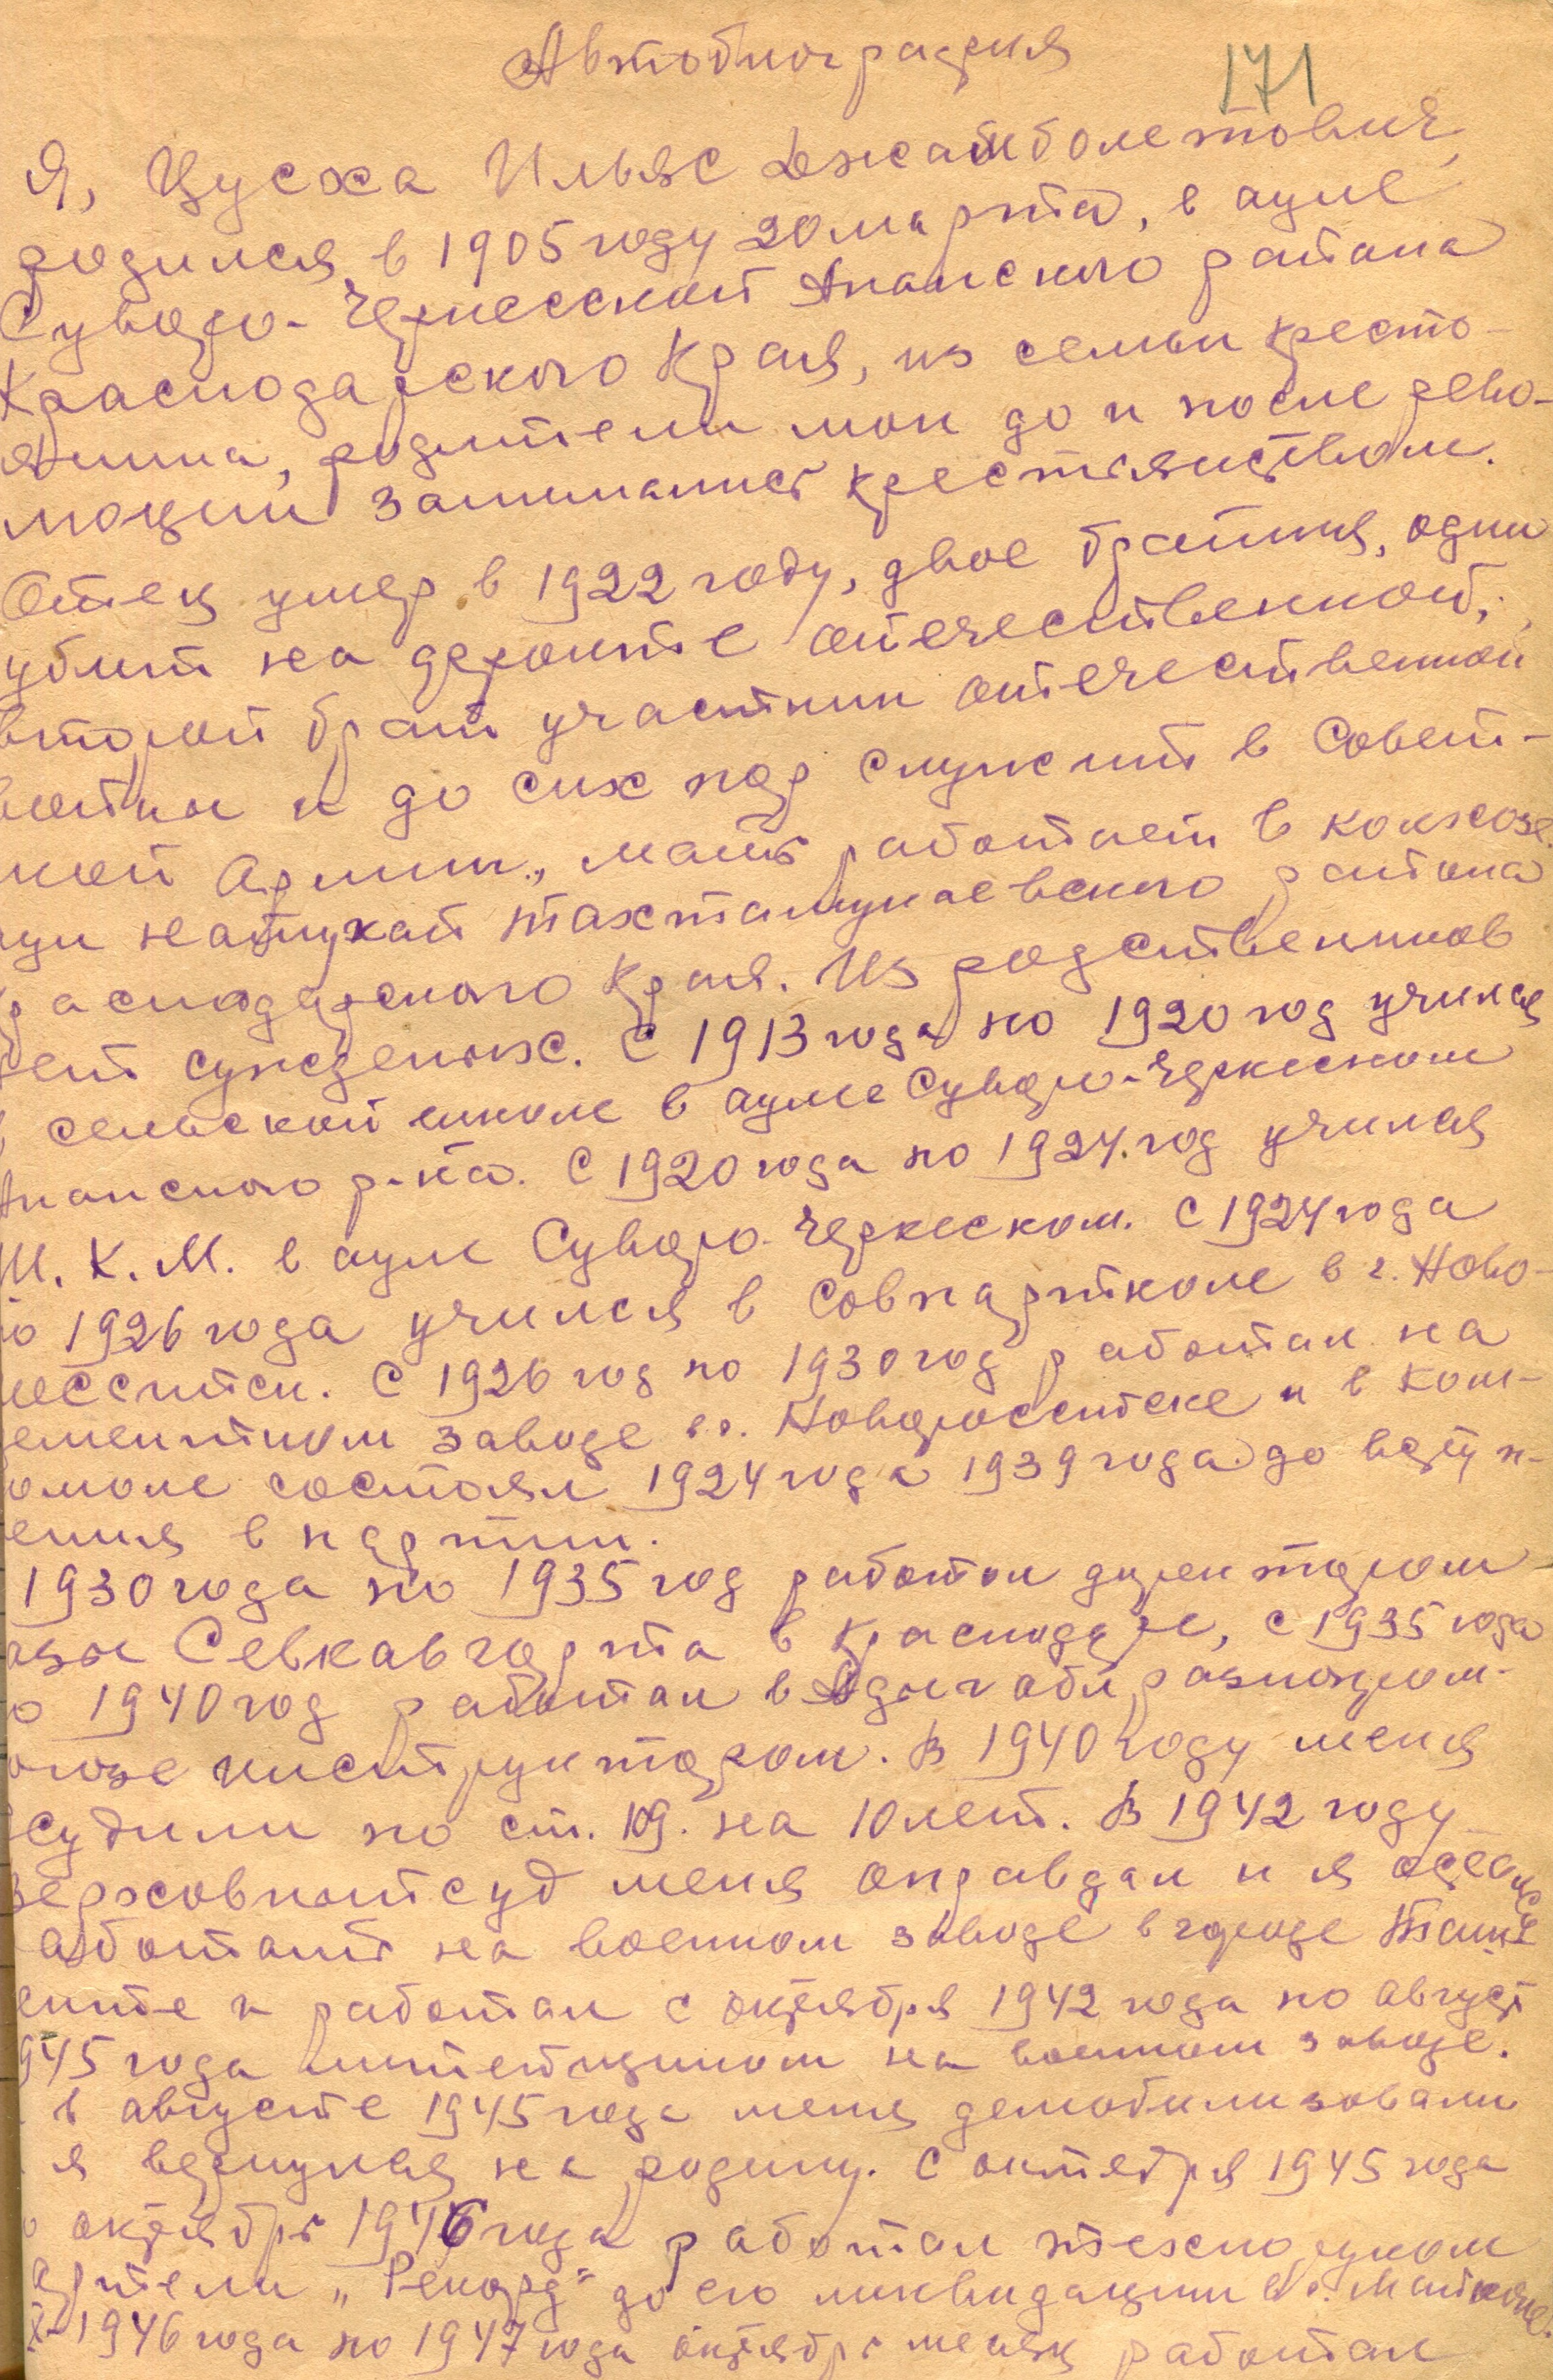 Автобиография
171
Я, Цусха Ильяс Джамболетович
родился в 1905 году 20 марта, в ауле
Суворо-Черкесской Анапского района
Краснодарского Края, из семьи кресто-
янина, родители мои до и после рево-
люции занимались крестьянством.
Отец умер в 1922 году, двое братья, один
убит на фронте отечественной,
второй брат участник отечественной
войны и до сих пор служит в Совет-
ской Армии, мать работает в колхозе
аул натухай тахтамукаевского района
Краснодарского Края. Из родственников
нет сужденых. С 1913 года по 1920 год учился
в сельской школе в ауле Суворо-Черкеском
Анапского р-на. С 1920 года по 1924 год учился
Ш. К. М. в ауле Суворо-Черкеском. С 1924 года
по 1926 года учился в Совпартшколе в г. Ново-
российск. С 1926 год по 1930 год работал на
цементном заводе в г. Новороссийске и в Ком-
сомоле состоял 1924 года 1939 года до вступ-
ления в партии.
1930 года по 1935 год работал директором
базы Севкавторга в Краснодаре, с 1935 года
по 1940 год работал в Адыгобл разнопром-
союзе инструктором. В 1940 году меня
осудили по ст. 109. на 10 лет. В 1942 году
Верховный суд меня оправдал и я остался
работать на военном заводе в городе Таш-
кенте и работал с октября 1942 года по август
1945 года на военном заводе.
в августе 1945 года меня демобилизовали
и я вернулся на родину. С октября 1945 года
по октябрь 1946 года работал техноруком
артели „Рекорд" до его ликвидации в г. Майкопе.
X-1946 года по 1947 года октябрь месяц работал